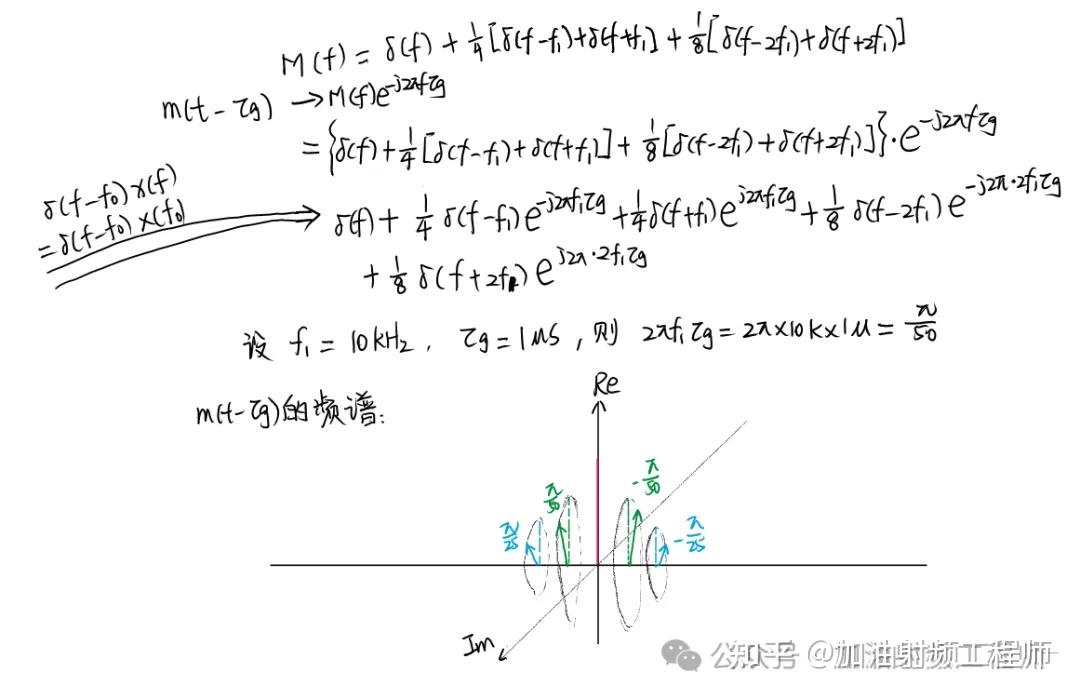 M(f) = δ(f) + 1/4[δ(f-f₁)+δ(f+f₁)] + 1/8[δ(f-2f₁)+δ(f+2f₁)]
m(t-τg) → M(f)e^{-j2πfτg}
= {δ(f)+1/4[δ(f-f₁)+δ(f+f₁)]+1/8[δ(f-2f₁)+δ(f+2f₁)]}·e^{-j2πfτg}
δ(f-f₀)X(f)
=δ(f-f₀)X(f₀)
δ(f)+ 1/4 δ(f-f₁)e^{-j2πf₁τg}+1/4δ(f+f₁)e^{j2πf₁τg}+1/8 δ(f-2f₁)e^{-j2π·2f₁τg}
+ 1/8 δ(f+2f₁)e^{j2π·2f₁τg}
设 f₁ = 10kHz, τg=1μs,则 2πf₁τg=2π×10k×1μ=π/50
m(t-τg)的频谱:
Re
π/25
π/50
-π/50
-π/25
Im
公众号 @加油射频工程师